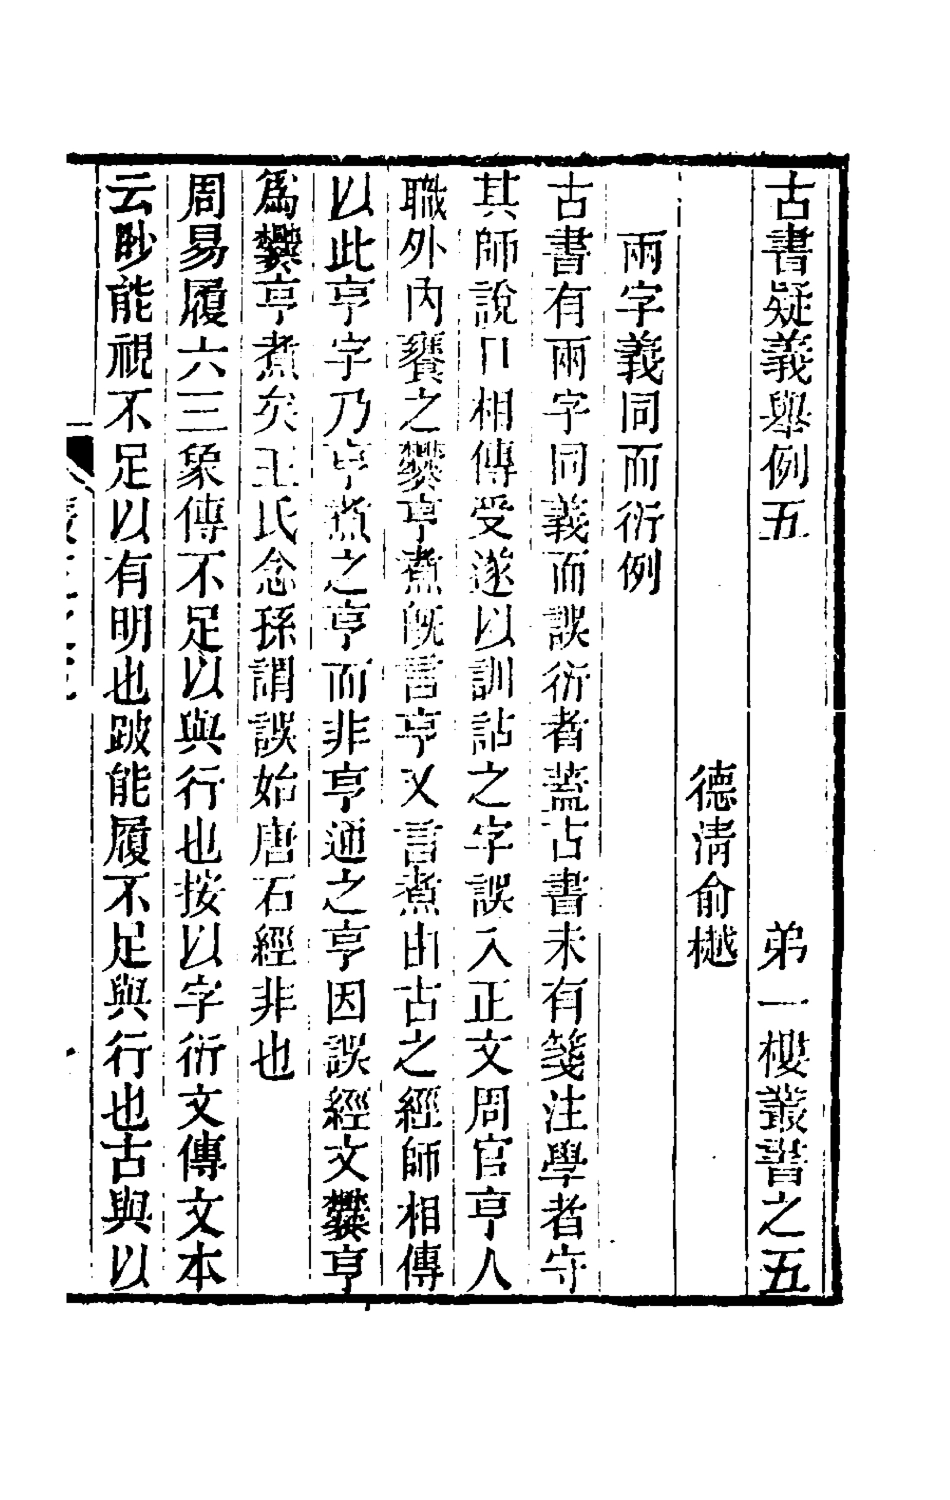 古書疑義舉例五　弟一樓叢書之五
德清俞樾
兩字義同而衍例
古書有兩字同義而誤衍者蓋古書未有箋注學者守
其師說口相傳受遂以訓詁之字誤入正文周官亨人
職外內饔之爨亨煮既言亨又言煮由古之經師相傳
以此亨字乃亨煮之亨而非亨通之亨因誤經文爨亨
爲爨亨煮矣王氏念孫謂誤始唐石經非也
周易履六三象傳不足以與行也按以字衍文傳文本
云眇能視不足以有明也跛能履不足與行也古與以